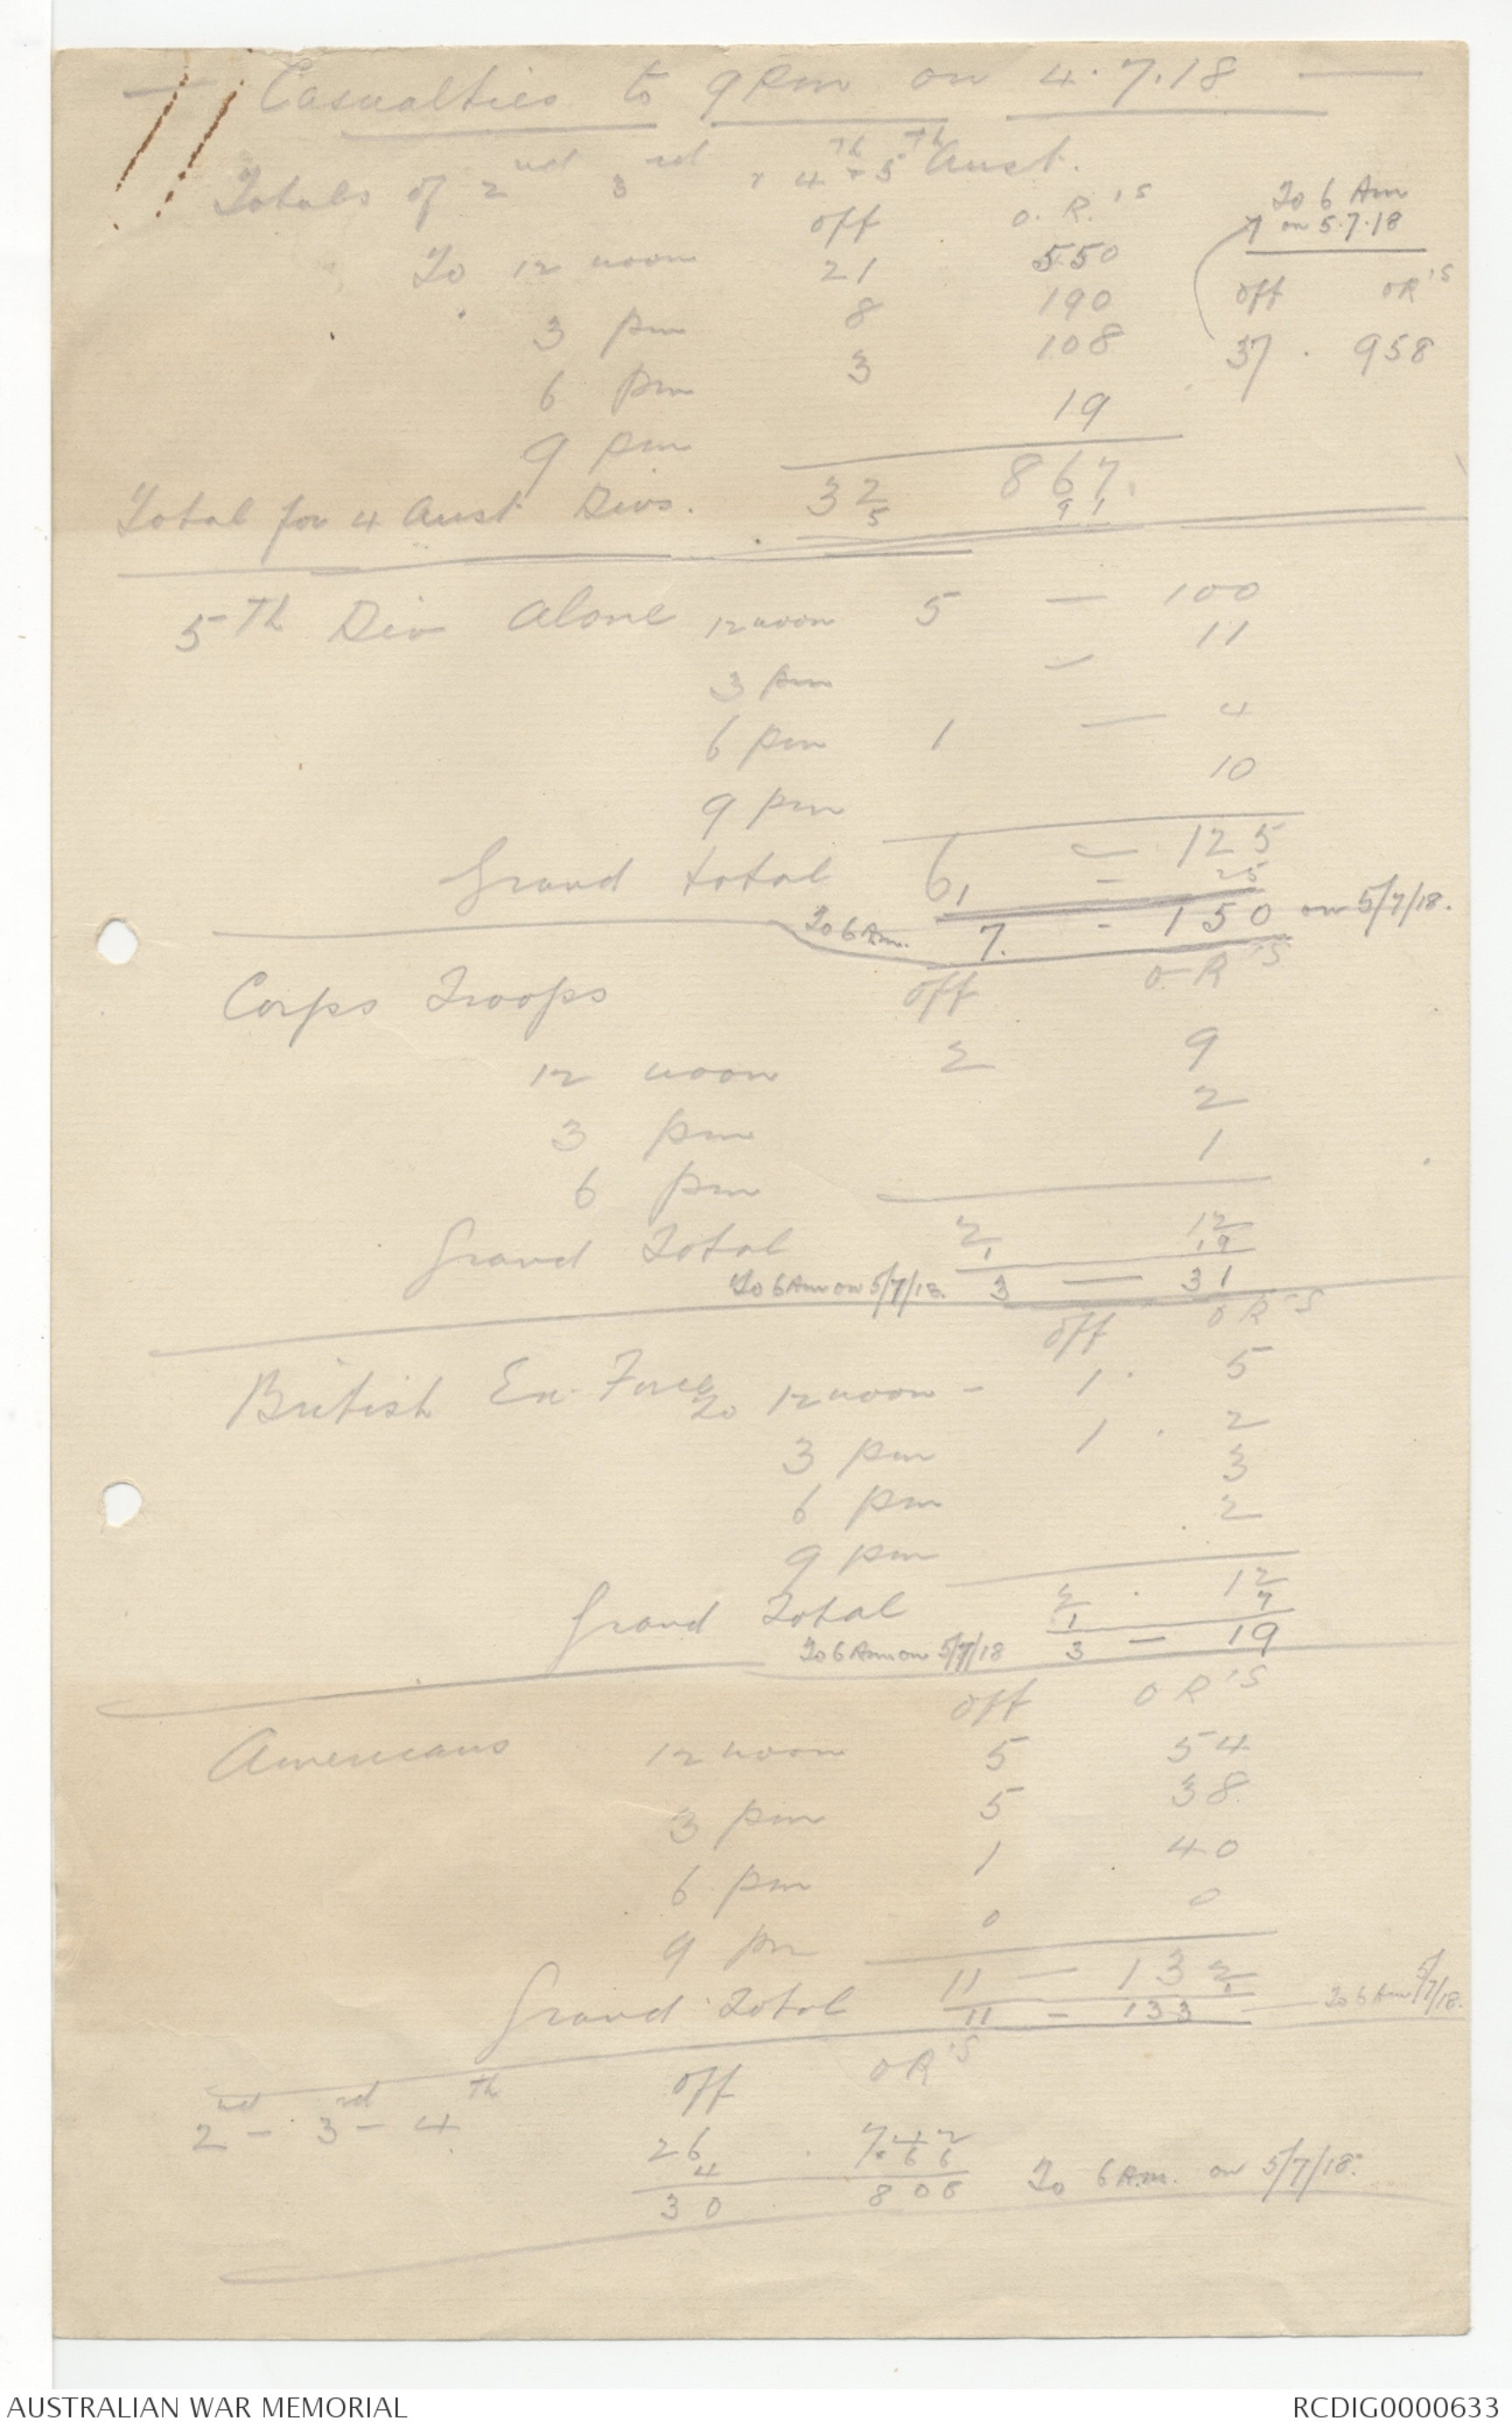 Casualties to 9 Pm on 4.7.18
Totals of 2nd 3rd & 4th & 5th Aust.
off O.R.'s
To 12 noon 21 550
3 pm 8 190
6 pm 3 108
9 pm 19
Total for 4 Aust Divs. 32 867
5 91
To 6 Am
on 5.7.18
off OR's
37 . 958
5th Div alone 12 noon 5 — 100
3 pm — 11
6 pm 1 — 4
9 pm 10
Grand total 6 — 125
1 — 25
To 6 Am. 7. - 150 on 5/7/18.
Corps Troops off O R's
12 noon 2 9
3 pm 2
6 pm 1
Grand Total 2 12
1 19
To 6 Am on 5/7/18. 3 — 31
off OR's
British Ex. Force To 12 noon - 1 . 5
3 pm 1 . 2
6 pm 3
9 pm 2
Grand Total 2 . 12
1 7
To 6 Am on 5/7/18 3 — 19
off OR's
Americans 12 noon 5 54
3 pm 5 38
6 pm 1 40
9 pm 0 0
Grand Total 11 — 132
1
11 - 133 To 6 Am 5/7/18.
off OR's
2nd - 3rd - 4th 26 . 742
4 66
30 808 To 6 A.m. on 5/7/18.
AUSTRALIAN WAR MEMORIAL RCDIG0000633